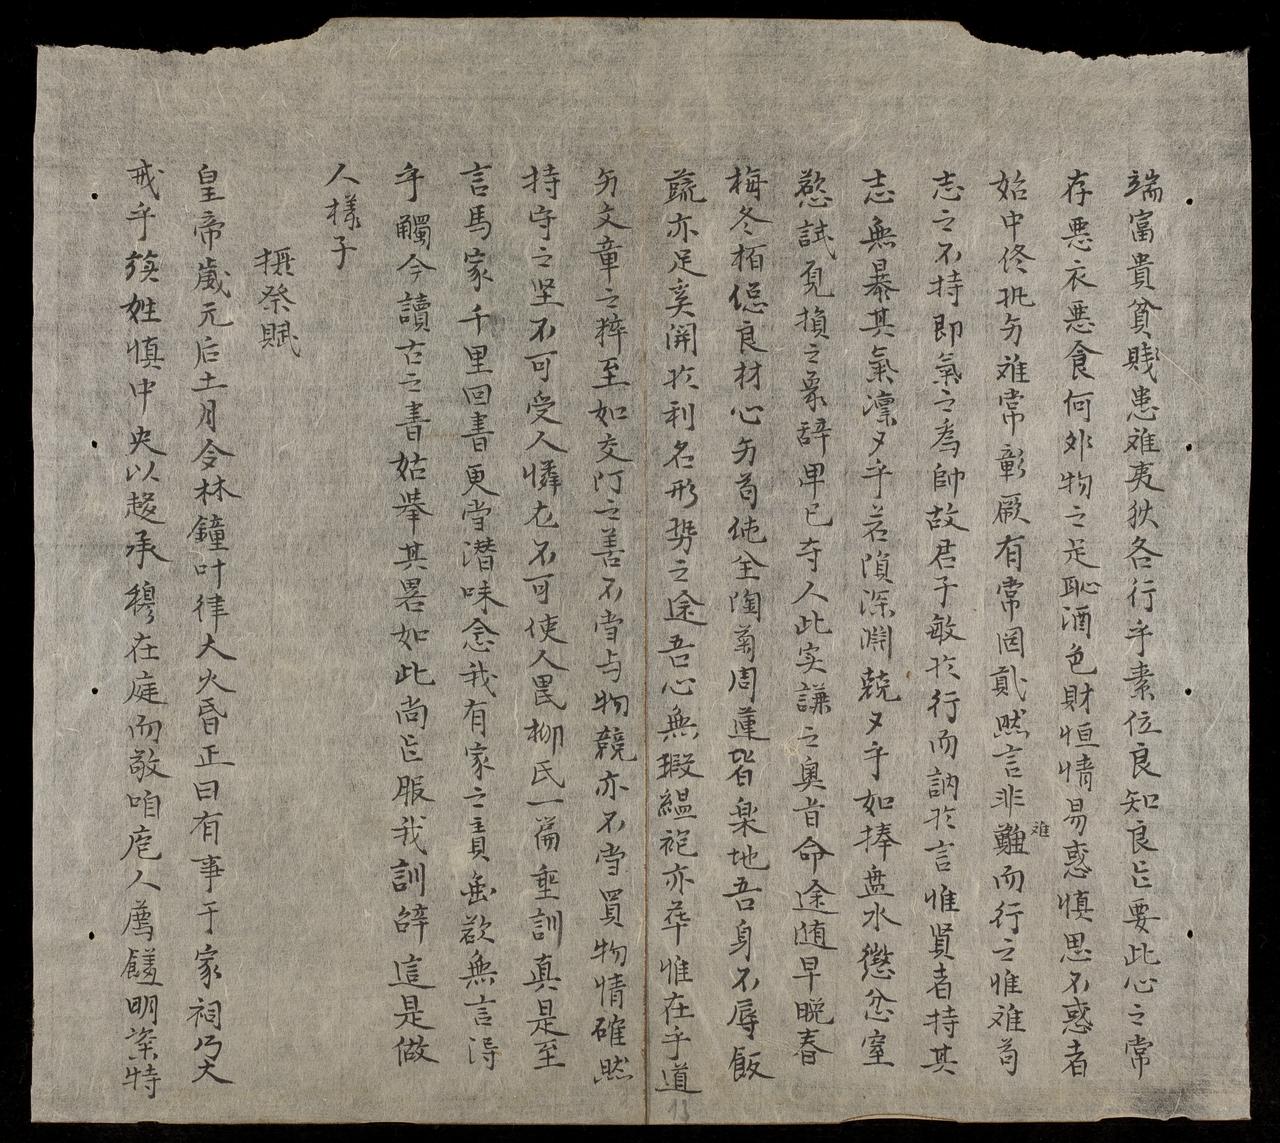 端富貴貧賤患难夷狄各行乎素位良知良㠯要此心之常
存悪衣悪食何外物之足恥酒色財恒情易惑慎思不惑者
始中佟𭛁为难常彰厥有常罔貳然言非難而行之惟难苟
难
志之不持即氣之為帥故君子敏於行而訥於言惟賢者持其
志無暴其氣凜夕乎若隕深淵兢夕乎如捧盘水懲忿窒
慾試覓損之象辞卑已夺人此实謙之奥旨命途随早晚春
梅冬栢偬良材心为苟純全陶菊周蓮皆楽地吾身不辱飯
蔬亦足奚関於利名形势之途吾心無瑕縕袍亦華惟在乎道
为文章之粹至如交汀之善不啻与物競亦不啻買物情確然
持守之坚不可受人憐尤不可使人畏柳氏一篇垂訓真是至
言馬家千里回書更当潜味念我有家之責虽欲無言淂
乎觸今讀古之書姑举其畧如此尚㠯服我訓辞這是做
人樣子
摂祭賦
皇帝歲元后土月令林鐘叶律大火昏正曰有事于家祠乃大
戒乎簇姓慎中央以趍承穆在庭而敬咱庖人薦饈明粢特
13